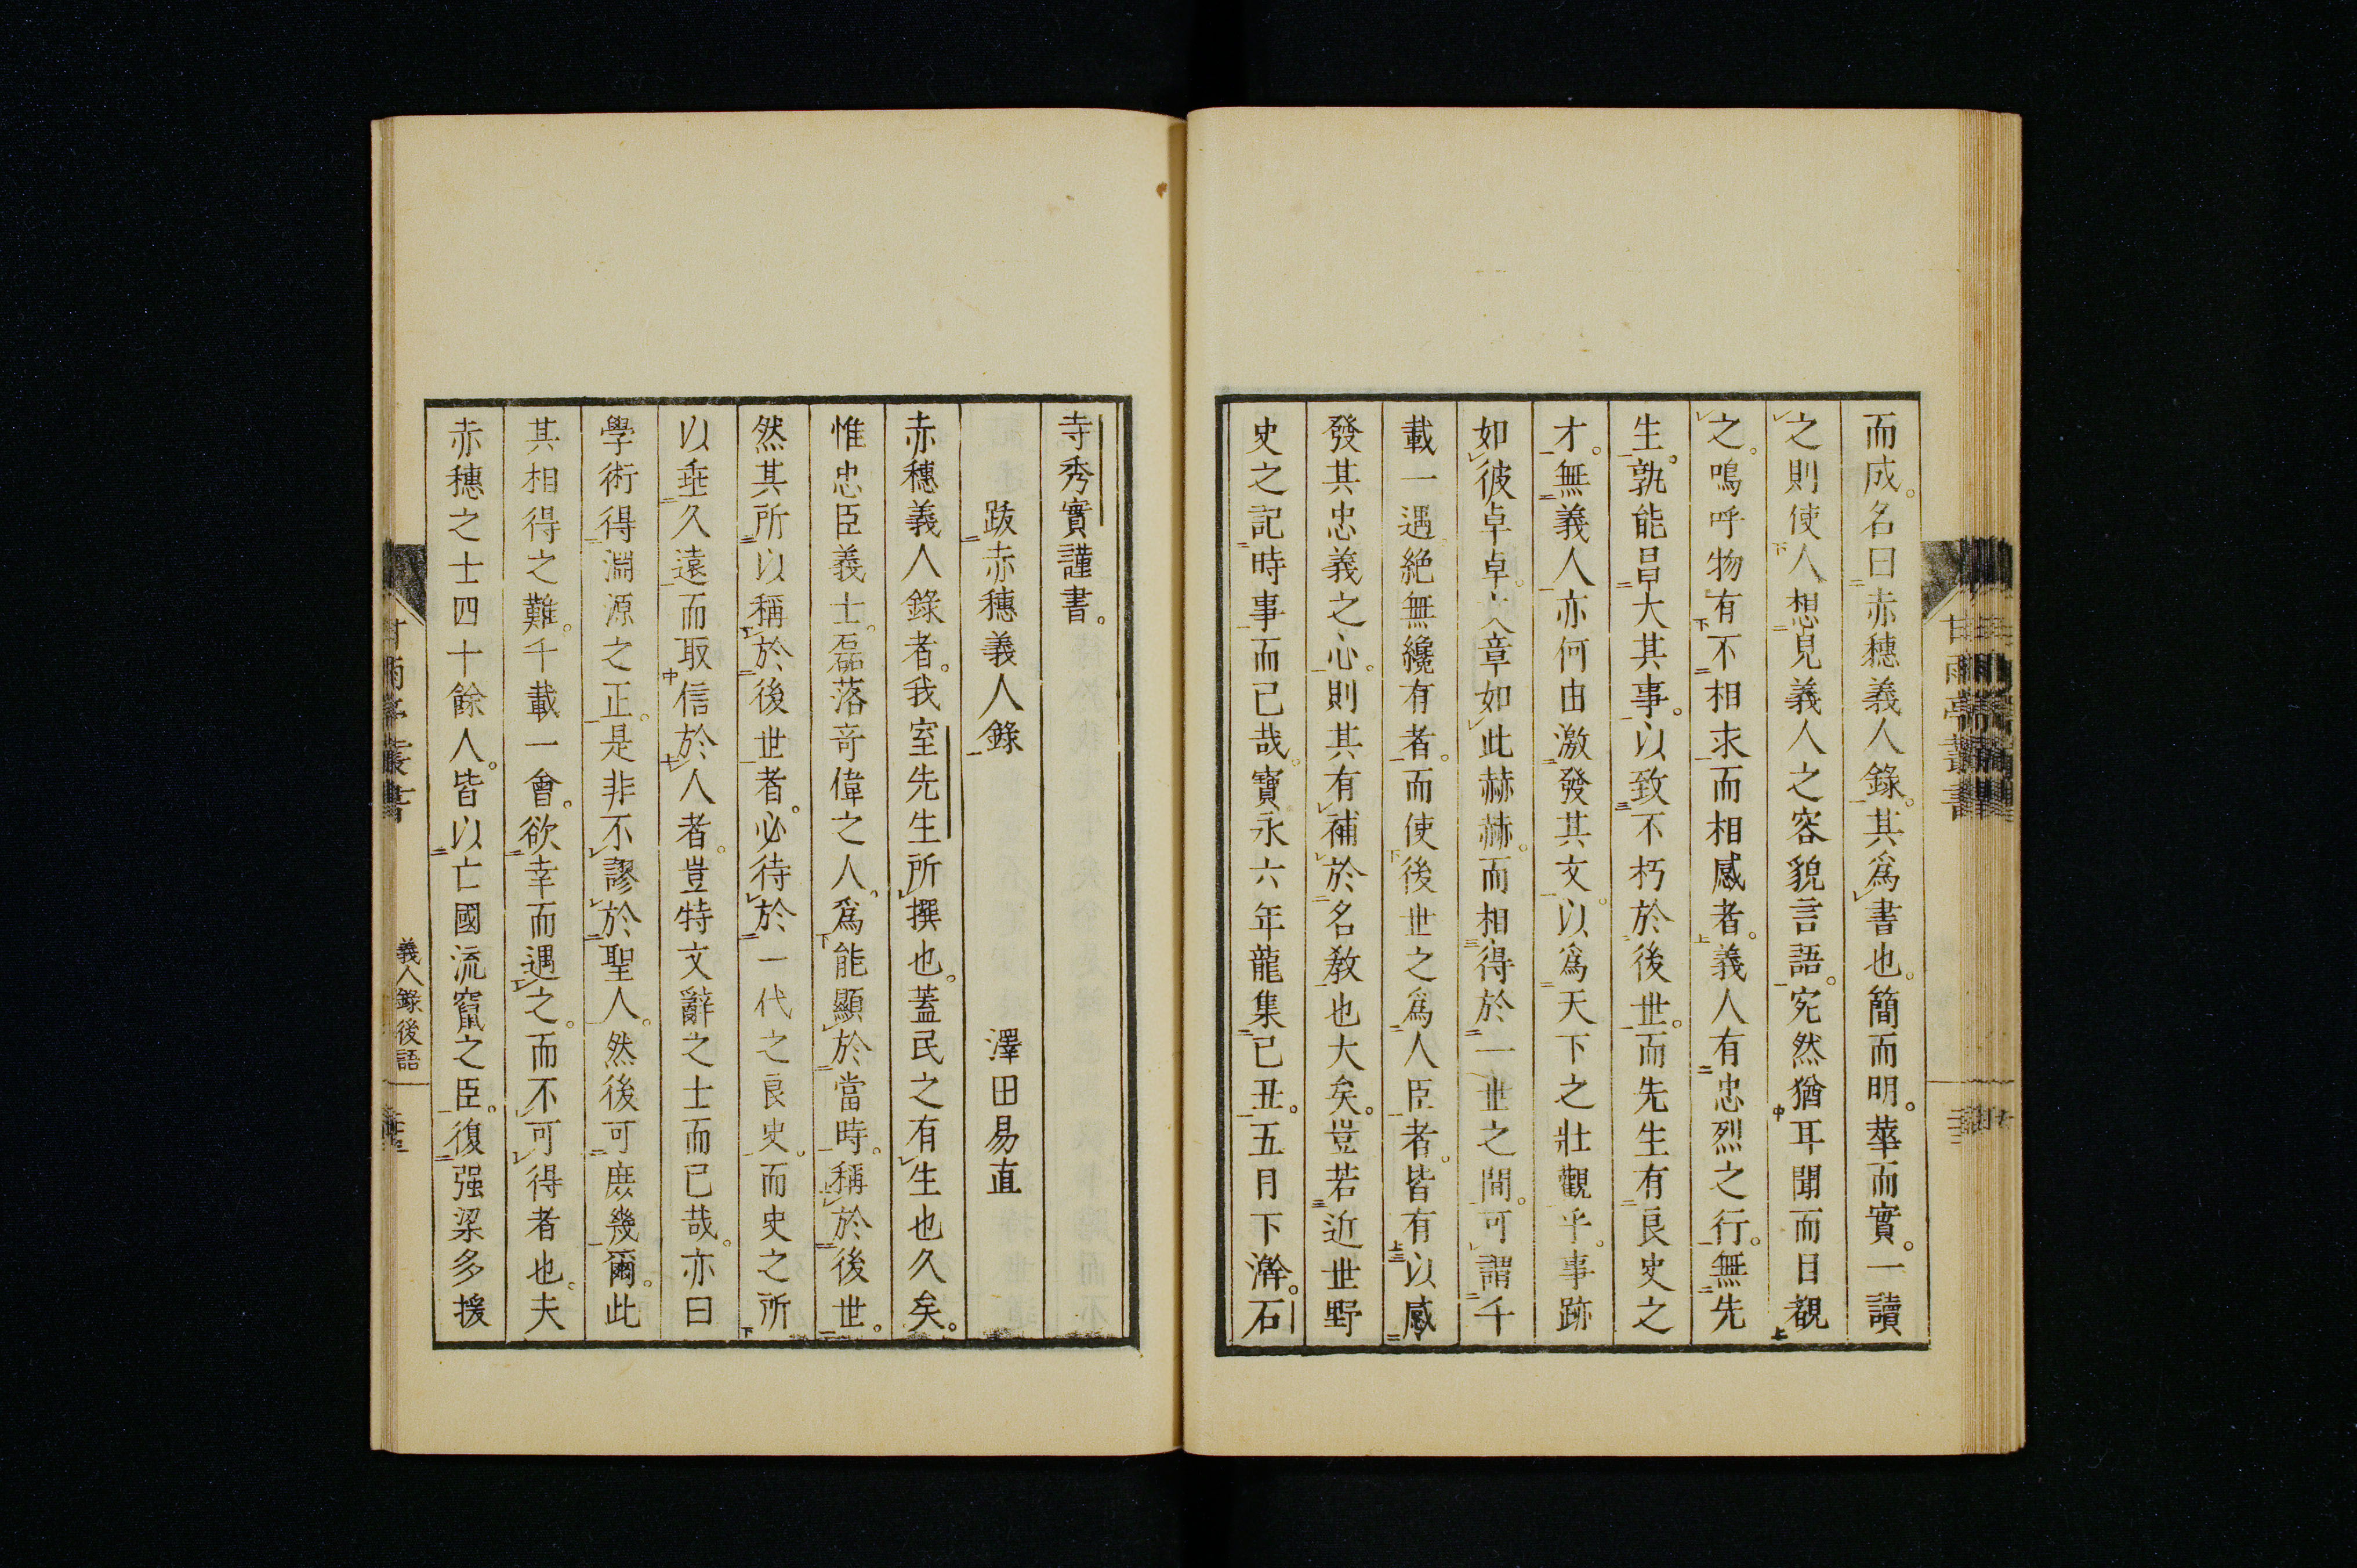 而成。名曰赤穗義人錄。其爲書也。簡而明。華而實。一讀
之則使人想見義人之容貌言語。宛然猶耳聞而目覩
之。嗚呼物有不相求而相感者。義人有忠烈之行。無先
生。孰能昌大其事。以致不朽於後世。而先生有良史之
才。無義人亦何由激發其文。以爲天下之壯觀乎。事跡
如彼卓卓。文章如此赫赫。而相得於一世之間。可謂千
載一遇絶無纔有者。而使後世之爲人臣者。皆有以感
發其忠義之心。則其有補於名教也大矣。豈若近世野
史之記時事而已哉。寶永六年龍集己丑。五月下澣。石
寺秀實謹書。
跋赤穗義人錄
澤田易直
赤穗義人錄者。我室先生所撰也。蓋民之有生也久矣。
惟忠臣義士。磊落奇偉之人。爲能顯於當時。稱於後世。
然其所以稱於後世者。必待於一代之良史。而史之所
以垂久遠而取信於人者。豈特文辭之士而已哉。亦曰
學術得淵源之正。是非不謬於聖人。然後可庶幾爾。此
其相得之難。千載一會。欲幸而遇之。而不可得者也。夫
赤穗之士四十餘人。皆以亡國流竄之臣。復强梁多援
甘雨亭叢書
義人錄後語